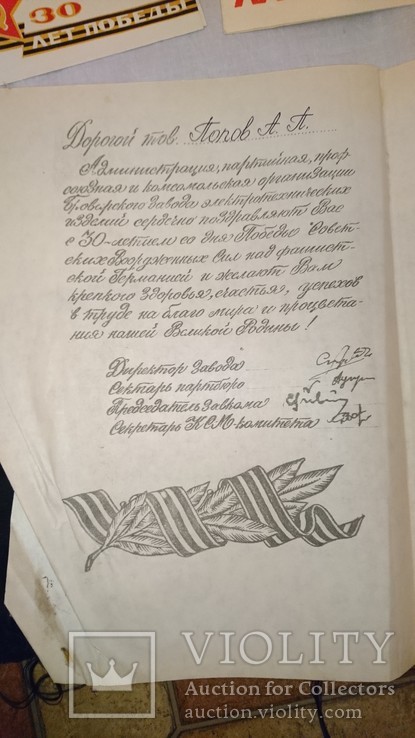 30
ЛЕТ ПОБЕДЫ
Дорогой тов. Попов А. П.
Администрация, партийная, проф-
союзная и комсомольская организации
Броварского завода электротехнических
изделий сердечно поздравляют Вас
с 30-летием со дня Победы Совет-
ских Вооруженных Сил над фашист-
ской Германией и желают Вам
крепкого здоровья, счастья, успехов
в труде на благо мира и процвета-
ния нашей Великой Родины!
Директор завода
Секретарь партбюро
Председатель завкома
Секретарь КСМ-комитета
VIOLITY
Auction for Collectors
auction.violity.com